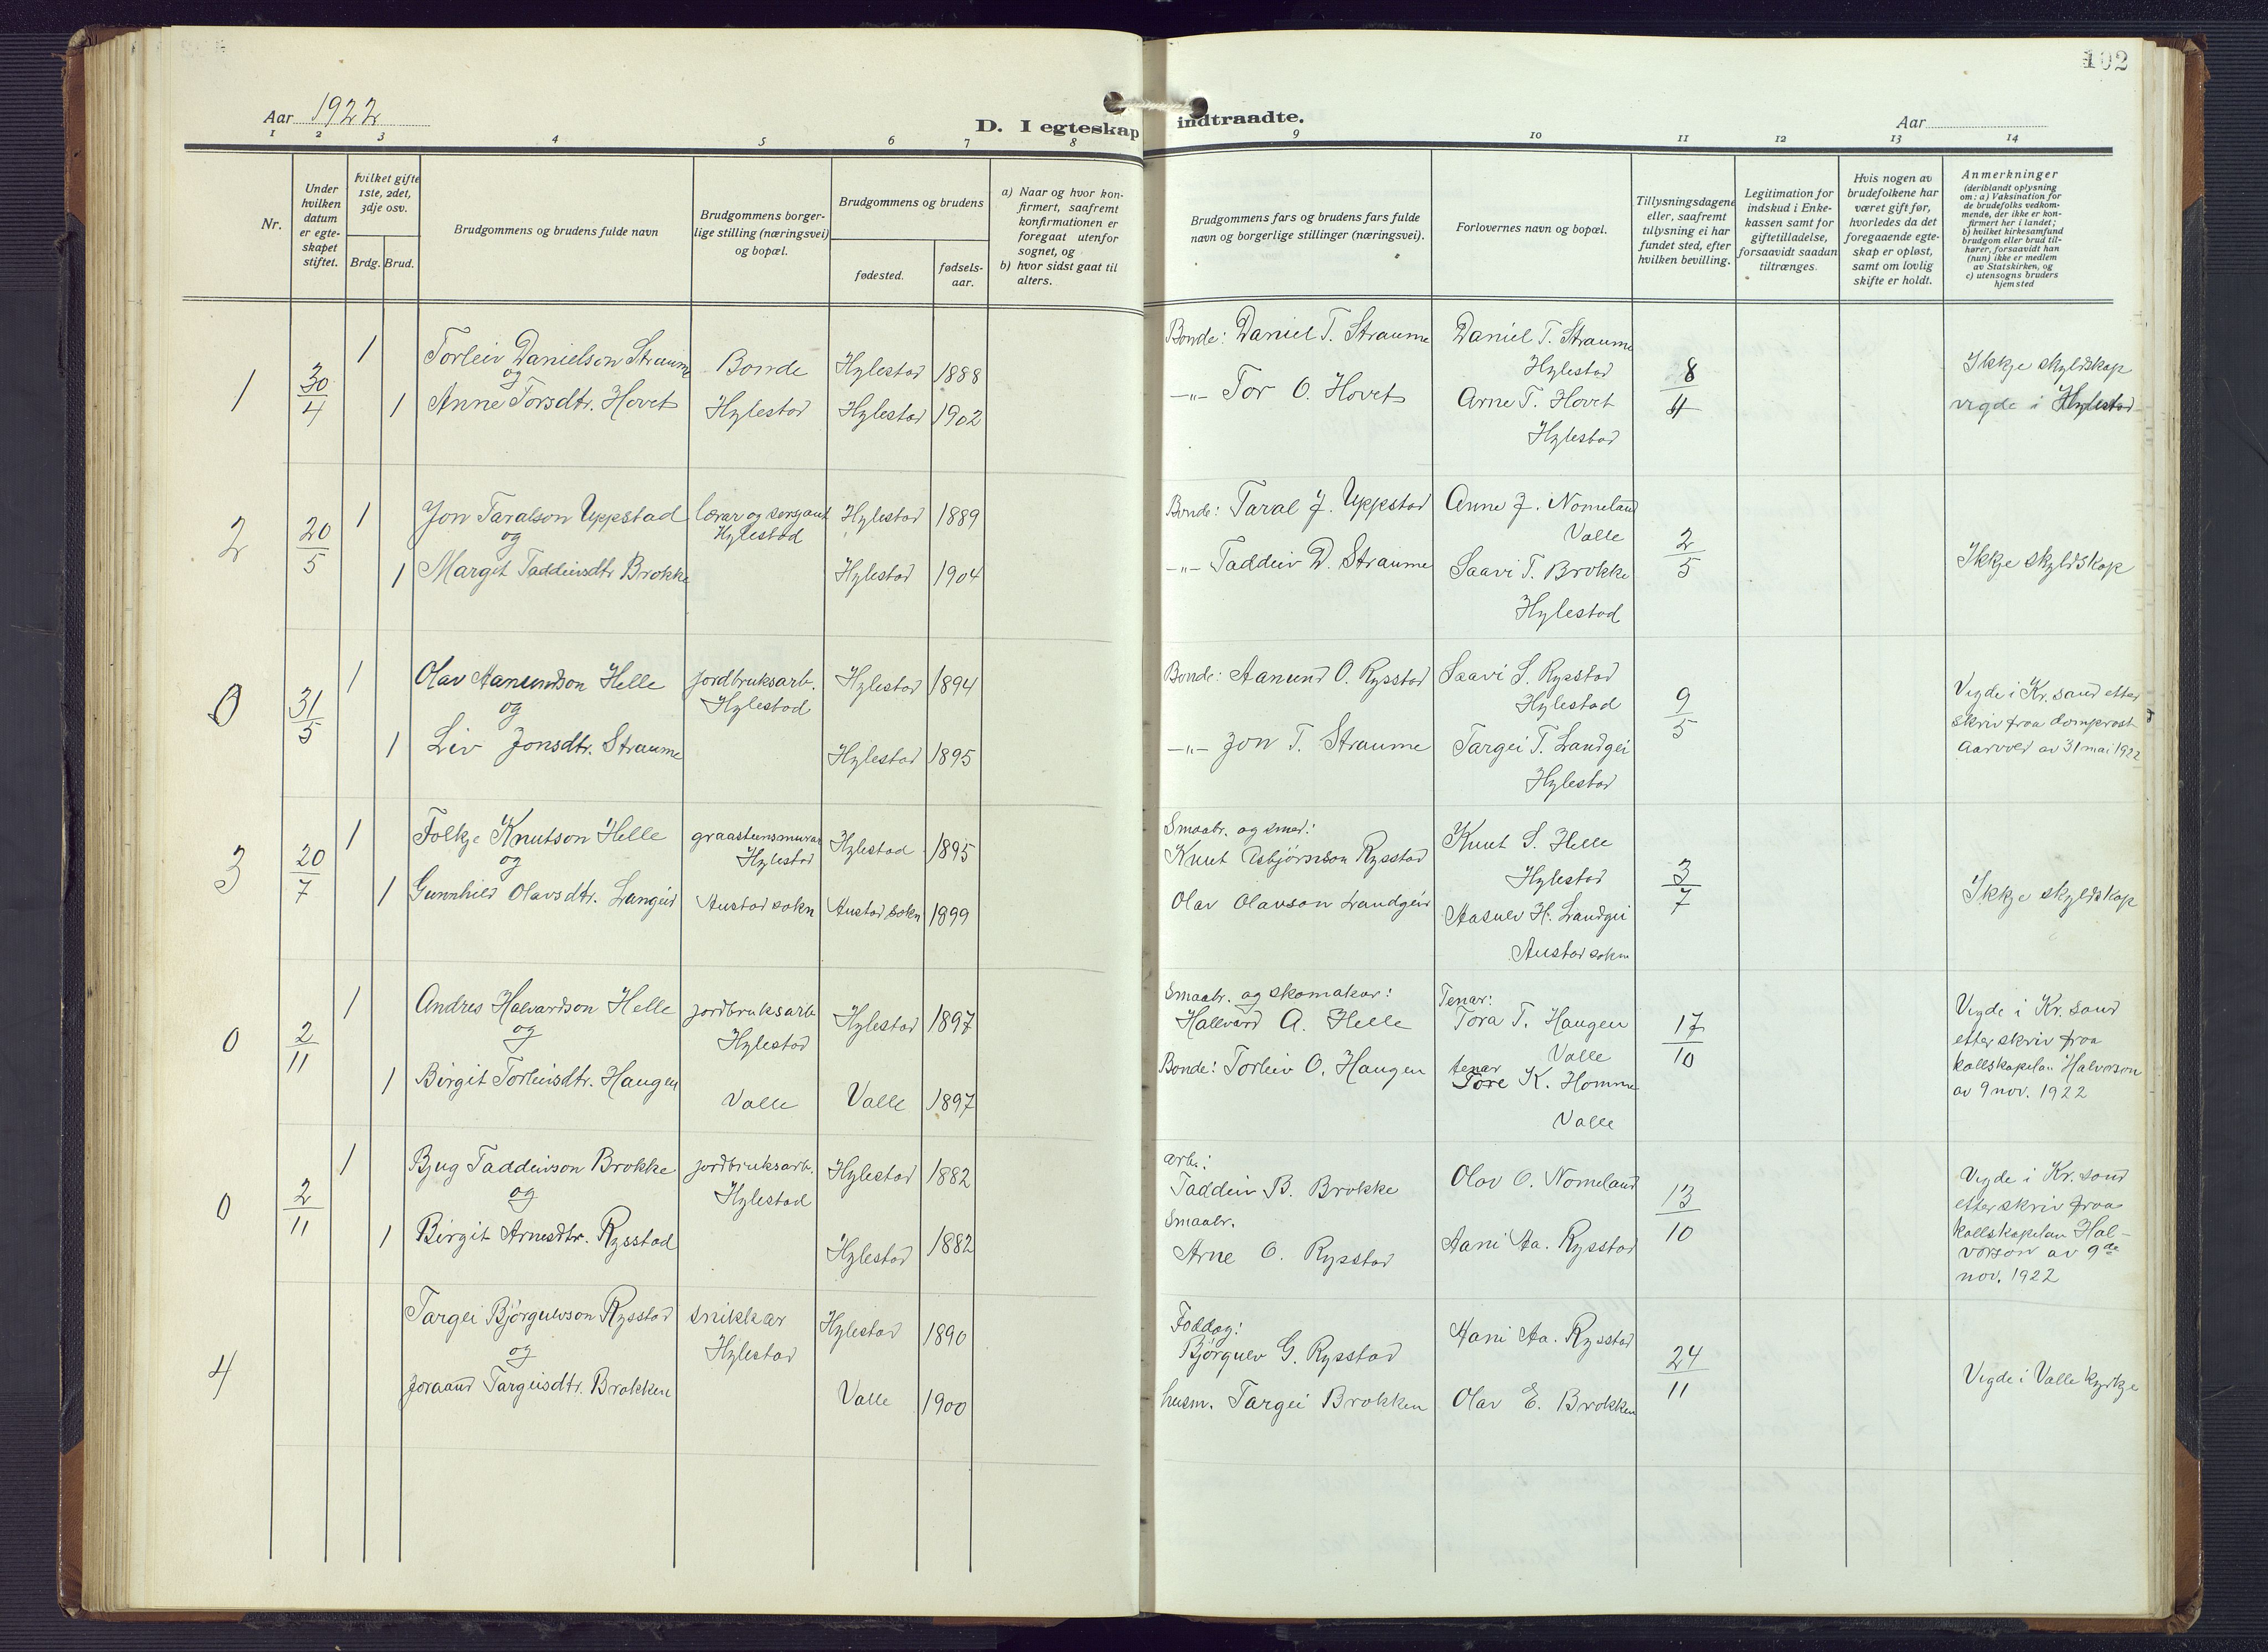 102
Aar 1922
D. I egteskap indtraadte.
Aar
1 2 3 4 5 6 7 8 9 10 11 12 13 14
Nr.
Under hvilken datum er egte-skapet stiftet.
hvilket gifte 1ste, 2det, 3dje osv.
Brdg. Brud.
Brudgommens og brudens fulde navn
Brudgommens borger-lige stilling (næringsvei) og bopæl.
Brudgommens og brudens
fødested.
fødsels-aar.
a) Naar og hvor kon-firmert, saafremt konfirmationen er foregaat utenfor sognet, og
b) hvor sidst gaat til alters.
Brudgommens fars og brudens fars fulde navn og borgerlige stillinger (næringsvei).
Forlovernes navn og bopæl.
Tillysningsdagene eller, saafremt tillysning ei har fundet sted, efter hvilken bevilling.
Legitimation for indskud i Enke-kassen samt for giftetilladelse, forsaavidt saadan tiltrænges.
Hvis nogen av brudefolkene har været gift før, hvorledes da det foregaaende egte-skap er opløst, samt om lovlig skifte er holdt.
Anmerkninger
(deriblandt oplysning om: a) Vaksination for de brudefolks vedkom-mende, der ikke er kon-firmert her i landet; b) hvilket kirkesamfund brudgom eller brud til-hører, forsaavidt han (hun) ikke er medlem av Statskirken, og c) utensogns bruders hjemsted
1 30/4 1 Torleiv Danielson Straume Bonde Hylestad 1888 Bonde: Daniel T. Straume Daniel T. Straume 8/4 Ikkje skyldskap
og Hylestad
1 Anne Torsdtr. Hovet Hylestad Hylestad 1902 -"- Tor O. Hovet Arne T. Hovet vigde i Hylestad
Hylestad
2 20/5 1 Jon Taralson Uppstad lærar og sersjant Hylestad 1889 Bonde: Taral J. Uppstad Anne J. Nomeland 2/5 Ikkje skyldskap
og Hylestad Valle
1 Margit Taddeivsdtr Brokke Hylestad 1904 -"- Taddeiv D. Straume Saavi T. Brokke
Hylestad
0 31/5 1 Olav Aanundson Helle jordbruksarb. Hylestad 1894 Bonde: Aanund O. Rysstad Saavi S. Rysstad 9/5 Vigde i Kr.sand etter
og Hylestad Hylestad skriv fraa domprost
1 Liv Jonsdtr. Straume Hylestad 1895 -"- Jon T. Straume Targei T. Landgei Aarvold av 31 mai 1922
Hylestad
3 20/7 1 Folkje Knutson Helle graasteinsmurar Hylestad 1895 Smaabr. og smed: Knut S. Helle 3/7 Ikkje skyldskap
og Hylestad Knut Asbjørnson Rysstad Hylestad
1 Gunnhild Olavsdtr. Langeid Austad sokn Austad sokn 1899 Olav Olavson Landgeid Aasulv H. Landgei
Austad sokn
0 2/11 1 Andres Halvardson Helle jordbruksarb Hylestad 1897 Smaabr. og skomakar: Tenar: 17/10 Vigde i Kr.sand
og Hylestad Hallvard A. Helle Tora T. Haugen etter skriv fraa
Valle kallskapelan Halvorson
1 Birgit Torleivsdtr. Haugen Valle Valle 1897 Bonde: Torleiv O. Haugen tenar Tore K. Homme av 9 nov. 1922
Valle
0 2/11 1 Bjug Taddeivson Brokke jordbruksarb. Hylestad 1882 arb.: Olav O. Nomeland 13/10 Vigde i Kr.sand
og Hylestad Taddeiv B. Brokke etter skriv fraa
1 Birgit Arnesdtr. Rysstad Hylestad 1882 Smaabr. Aani Aa. Rysstad kallskapelan Hal-
Arne O. Rysstad vorson av 9de
nov. 1922
4 Targei Bjørgulvson Rysstad snikkar Hylestad 1890 Foddog: Aani Aa. Rysstad 24/11 Vigde i Valle kyrkje
og Hylestad Bjørgulv G. Rysstad
Joraand Targeisdtr. Brokken Valle 1900 husm. Targei Brokken Olav E. Brokken